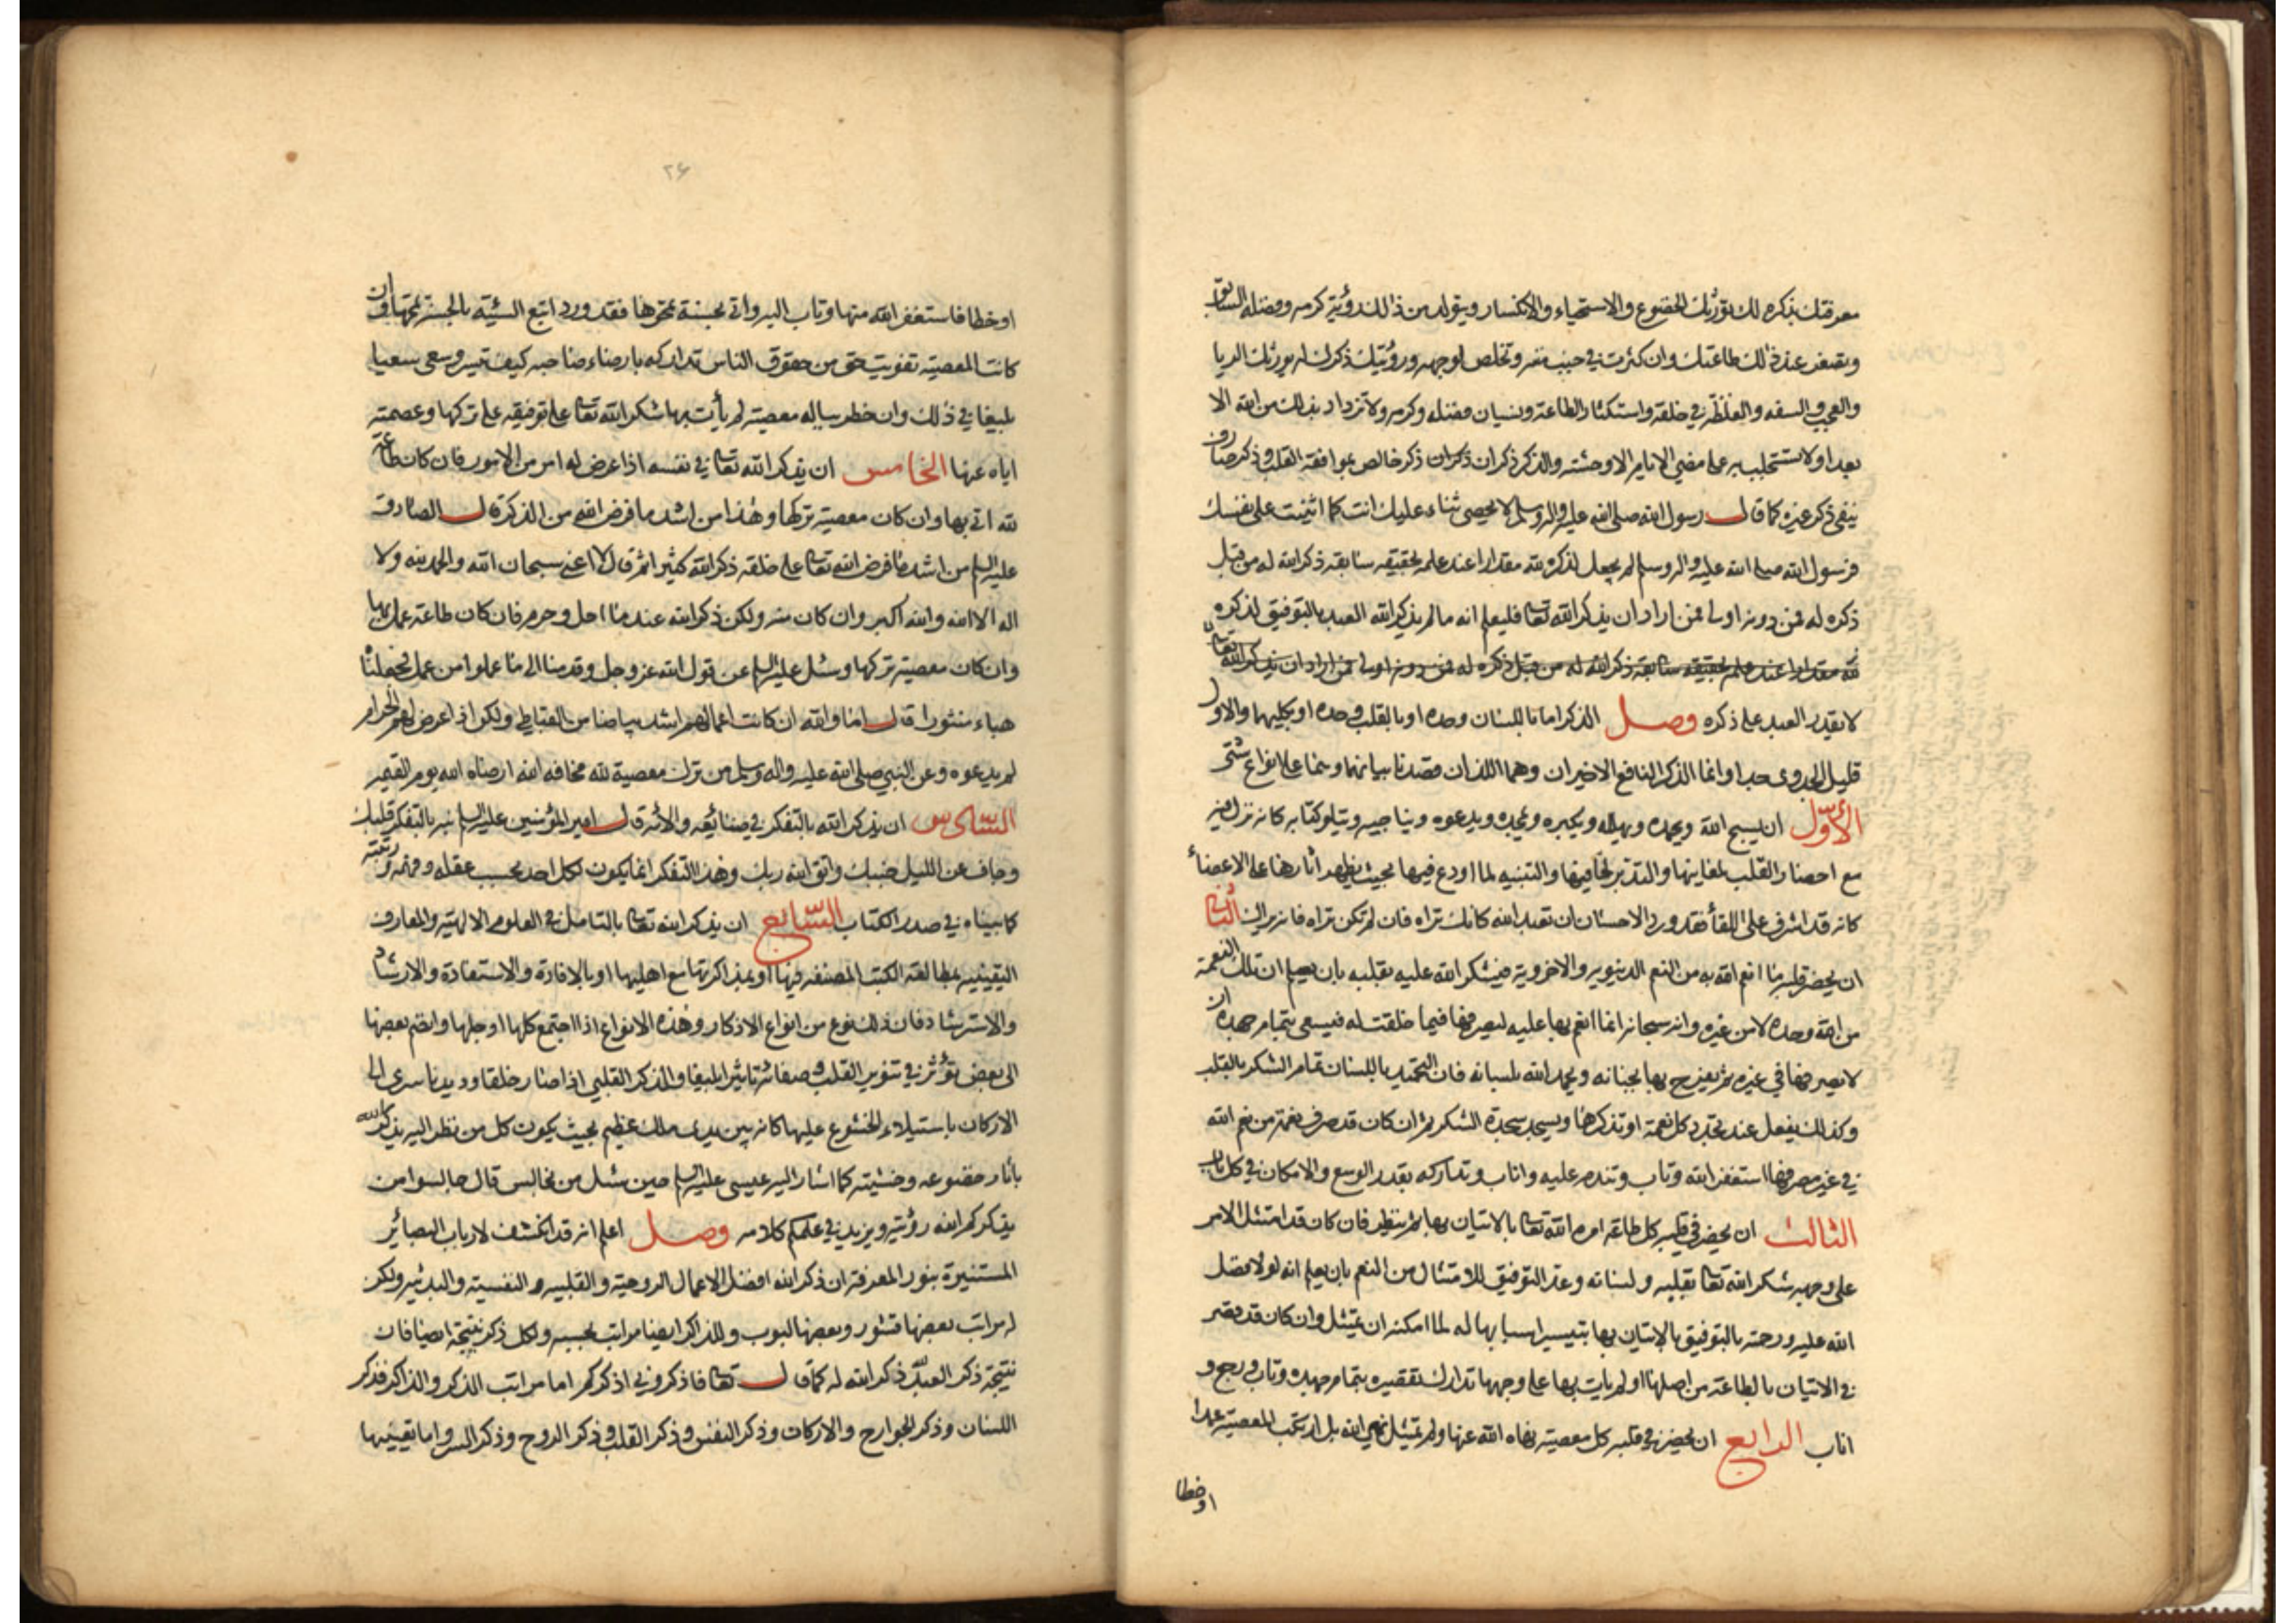 معرفتك بذكره لك تورثك الخضوع والاستحياء والانكسار ويتولد من ذلك رؤية كرمه وفضله السابق
وتصغر عند ذلك طاعتك وان كثرت في جنب مننه وتخلص لوجهه ورؤيتك ذكرك له يورثك الريا
والعجب والسفه والغلظة في خلقه واستكثار الطاعة ونسيان فضله وكرمه ولا تزداد بذلك من الله الا
بعدا ولا تستجلب به على مضي الايام الا وحشة والذكر ذكران ذكر خالص بموافقة القلب وذكر صارف
ينفى ذكر غيره كما قال رسول الله صلى الله عليه واله وسلم لا يحصى ثناء عليك انت كما اثنيت على نفسك
فرسول الله صلى الله عليه واله وسلم لم يجعل لذكره لله مقدارا عند علمه بحقيقة سابقة ذكر الله له من قبل
ذكره له فمن دونه اولى فمن اراد ان يذكر الله تعا فليعلم انه ما لم يذكر الله العبد بالتوفيق لذكره
لله مقدارا عند علمه بحقيقة سابقة ذكر الله له من قبل ذكره له فمن دونه اولى فمن اراد ان يذكر الله تعا
لا يقدر العبد على ذكره وصل الذكر اما باللسان وحده او بالقلب وحده او بكليهما والاول
قليل الجدوى جدا وانما الذكر النافع الاخيران وهما اللذان قصدنا بيانهما وهما على انواع شتى
الأوّل ان يسبح الله ويحمده ويهلله ويكبره ويمجده ويدعوه ويناجيه ويتلو كتابه كانه نزل فيه
مع احضار القلب لمعانيها والتدبر لخافيها والتنبيه لما اودع فيها بحيث يظهر اثارها على الاعضاء
كانه قد اشرف على اللقأ فقد ورد الاحسان ان تعبد الله كانك تراه فان لم تكن تراه فانه يراك الثاني
ان يحضر قلبه ما انعم الله به من النعم الدنيويه والاخروية فيشكر الله عليه بقلبه بان يعلم ان تلك النعمة
من الله وحده لا من غيره وانه سبحانه انما انعم بها عليه ليصرفها فيما خلقت له فيسعى بتمام جهده ان
لا يصرفها في غيره ثم يفرح بها بجنانه ويحمد الله بلسانه فان التحميد باللسان تمام الشكر بالقلب
وكذلك يفعل عند تجدد كل نعمة او تذكرها ويسجد سجدة الشكر ثم ان كان قد صرف نعمة من نعم الله
في غير مصرفها استغفر الله وتاب وتندم عليه واناب وتداركه بقدر الوسع والامكان في كل باب
الثالث ان يحضر في قلبه كل طاعة امره الله تعا بالاتيان بها ثم ينظر فان كان قد امتثل الامر
على وجهه شكر الله تعا بقلبه ولسانه وعد التوفيق للامتثال من النعم بان يعلم انه لولا فضل
الله عليه ورحمته بالتوفيق بالاتيان بها بتيسير اسبابها له لما امكنه ان يمتثل وان كان قد قصر
في الاتيان بالطاعة من اصلها او لم يات بها على وجهها تدارك تقصيره بتمام جهده وتاب ورجع و
اناب الرابع ان يحضر في قلبه كل معصية نهاه الله عنها ولم يمتثل نهي الله بل ارتكب المعصية عمدا
او خطا
۲۶
او خطا فاستغفر الله منها وتاب اليه واتى بحسنة تمحوها فقد ورد اتبع السيئة بالحسنة تمحها وان
كانت المعصية تفويت حق من حقوق الناس تداركه بارضاء صاحبه كيف تيسر وسعى سعيا
بليغا في ذلك وان خطر بباله معصية لم يأت بها شكر الله تعا على توفيقه على تركها وعصمته
اياه عنها الخامس ان يذكر الله تعا في نفسه اذا عرض له امر من الامور فان كان طاعة
لله اتى بها وان كان معصية تركها وهذا من اشد ما فرض الله من الذكر قال الصادق
عليه السلم من اشد ما فرض الله تعا على خلقه ذكر الله كثيرا ثم قال لا اعنى سبحان الله والحمد لله ولا
اله الا الله والله اكبر وان كان منه ولكن ذكر الله عند ما احل وحرم فان كان طاعة عمل بها
وان كان معصية تركها وسئل عليه السلم عن قول الله عز وجل وقدمنا الى ما عملوا من عمل فجعلناه
هباء منثورا قال اما والله ان كانت اعمالهم اشد بياضا من القباطي ولكن اذا عرض لهم الحرام
لم يدعوه وعن النبي صلى الله عليه واله وسلم من ترك معصية لله مخافة الله ارضاه الله يوم القيمة
السّادس ان يذكر الله بالتفكر في صنائعه والأئه قال امير المؤمنين عليه السلم نبه بالتفكر قلبك
وجاف عن الليل جنبك واتق الله ربك وهذا التفكر انما يكون لكل احد بحسب عقله وفهمه ورتبته
كما بيناه في صدر الكتاب السّابع ان يذكر الله تعا بالتامل في العلوم الالهية والمعارف
اليقينيه بمطالعة الكتب المصنفه فيها او بمذاكرتها مع اهليها او بالافادة والاستفادة والارشاد
والاسترشاد فان ذلك نوع من انواع الاذكار وهذه الانواع اذا اجتمع كلها او جلها وانضم بعضها
الى بعض تؤثر في تنوير القلب وصفائه تاثيرا بليغا والذكر القلبي اذا صار خلقا وديدنا سرى الى
الاركان باستيلاء الخشوع عليها كانه بين يدى ملك عظيم بحيث يكون كل من نظر اليه يذكر الله
بأثار خضوعه وخشيته كما اشار اليه عيسى عليه السلم حين سئل من نجالس قال جالسوا من
يذكركم الله رؤيته ويزيد في علمكم كلامه وصل اعلم انه قد انكشف لارباب البصائر
المستنيرة بنور المعرفة ان ذكر الله افضل الاعمال الروحية والقلبيه والنفسية والبدنيه ولكن
له مراتب بعضها قشور وبعضها لبوب وللذاكر ايضا مراتب بحسبه ولكل ذكر نتيجة ايضا فان
نتيجة ذكر العبد لله ذكر الله له كما قال تعا فاذكروني اذكركم اما مراتب الذكر والذاكر فذكر
اللسان وذكر الجوارح والاركان وذكر النفس وذكر القلب وذكر الروح وذكر السر واما تعيينها